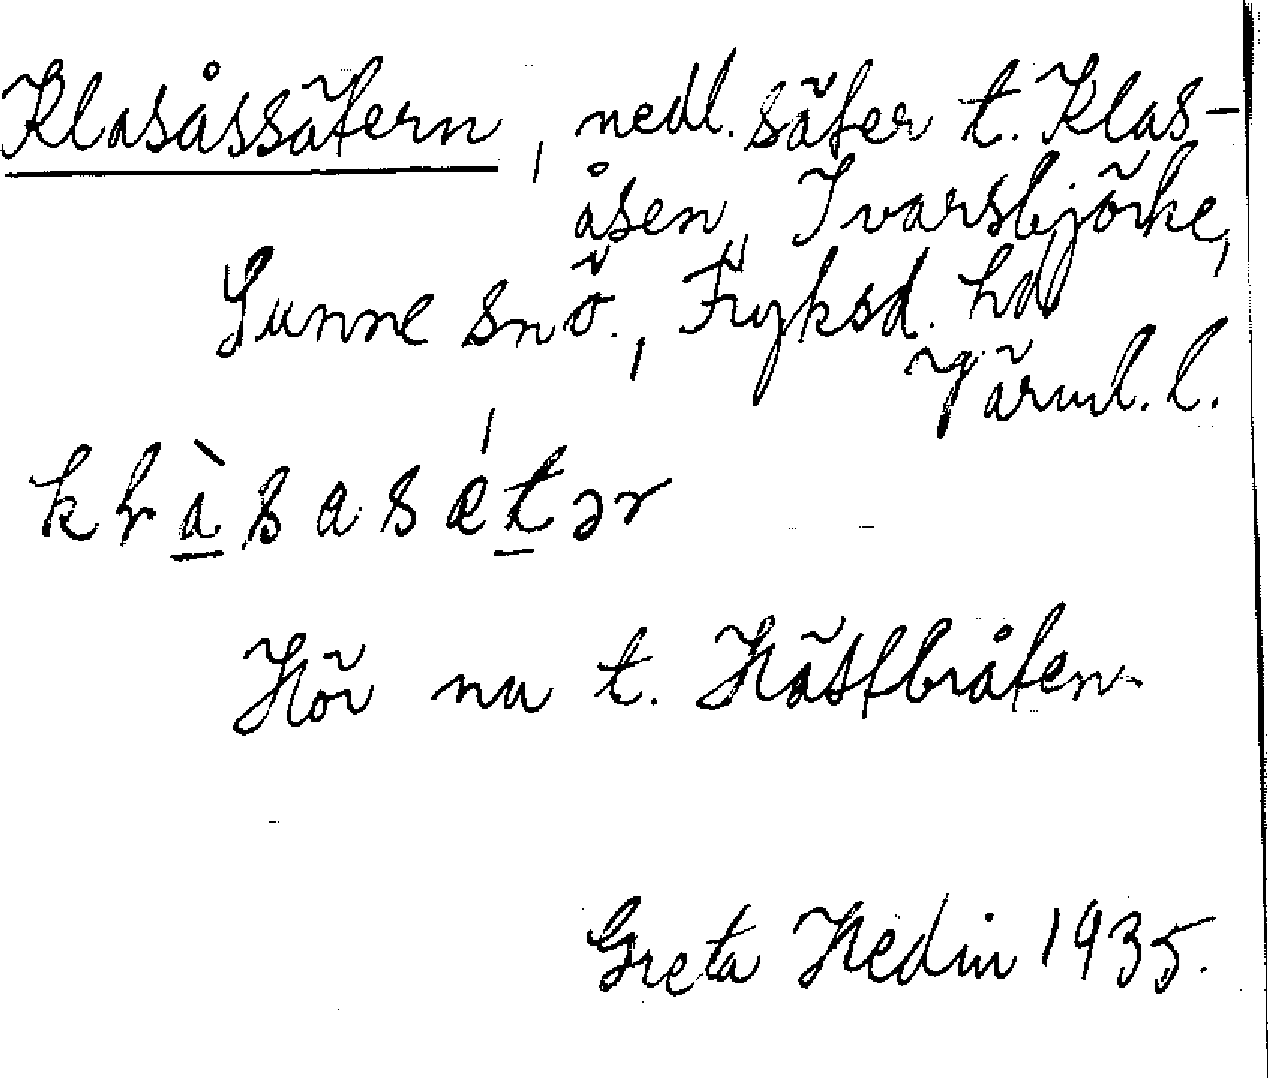 Klasåssätern, nedl. säter t. Klas-
åsen, Ivarsbjörke,
Sunne snö., Fryksd. hd
Värml. l.
kràsasætər
Hör nu t. Hästbråten
Greta Hedin 1935.